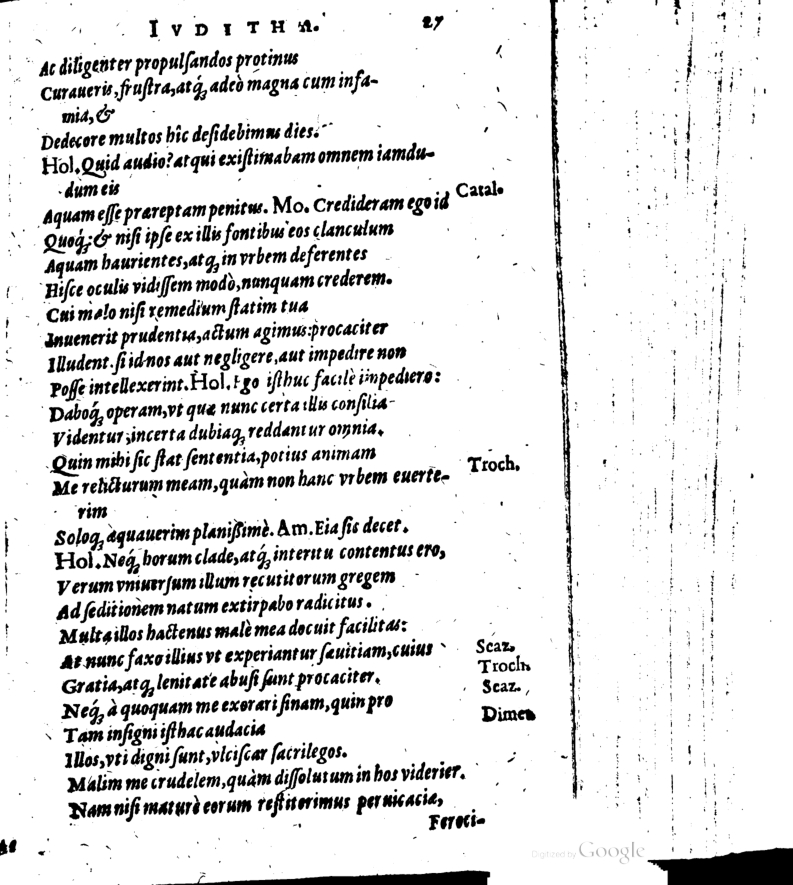 IVDITHA. 27
Ac diligenter propulſandos protinus
Curaueris, fruſtra, atq́ꝫ adeò magna cum infa-
mia, &
Dedecore multos hîc deſidebimus dies.
Hol. Quid audio? atqui exiſtimabam omnem iamdu-
dum eis
Aquam eſſe præreptam penitus. Mo. Credideram ego id Catal.
Quoq́ꝫ: & niſi ipſe ex illis fontibus eos clanculum
Aquam haurientes, atqꝫ in vrbem deferentes
Hiſce oculis vidiſſem modò, nunquam crederem.
Cui malo niſi remedium ſtatim tua
Inuenerit prudentia, actum agimus: procaciter
Illudent. ſi id nos aut negligere, aut impedire non
Poſſe intellexerint. Hol. Ego iſthuc facilè impediero:
Daboq́ꝫ operam, vt quæ nunc certa illis conſilia
Videntur, incerta dubiaqꝫ reddantur omnia.
Quin mihi ſic ſtat ſententia, potius animam
Me relicturum meam, quàm non hanc vrbem euerte- Troch.
rim
Soloqꝫ æquauerim planißimè. Am. Eia ſis decet.
Hol. Neq́ꝫ horum clade, atq́ꝫ interitu contentus ero,
Verum vniuerſum illum recutitorum gregem
Ad ſeditionem natum extirpabo radicitus.
Multa illos hactenus malè mea docuit facilitas:
At nunc faxo illius vt experiantur ſæuitiam, cuius Scaz.
Gratia, atqꝫ lenitate abuſi ſunt procaciter. Troch.
Neq́ꝫ à quoquam me exorari ſinam, quin pro Scaz.
Tam inſigni iſthac audacia Dimet
Illos, vti digni ſunt, vlciſcar ſacrilegos.
Malim me crudelem, quàm diſſolutum in hos viderier.
Nam niſi maturè eorum reſtiterimus peruicacia,
Feroci-
Digitized by Google